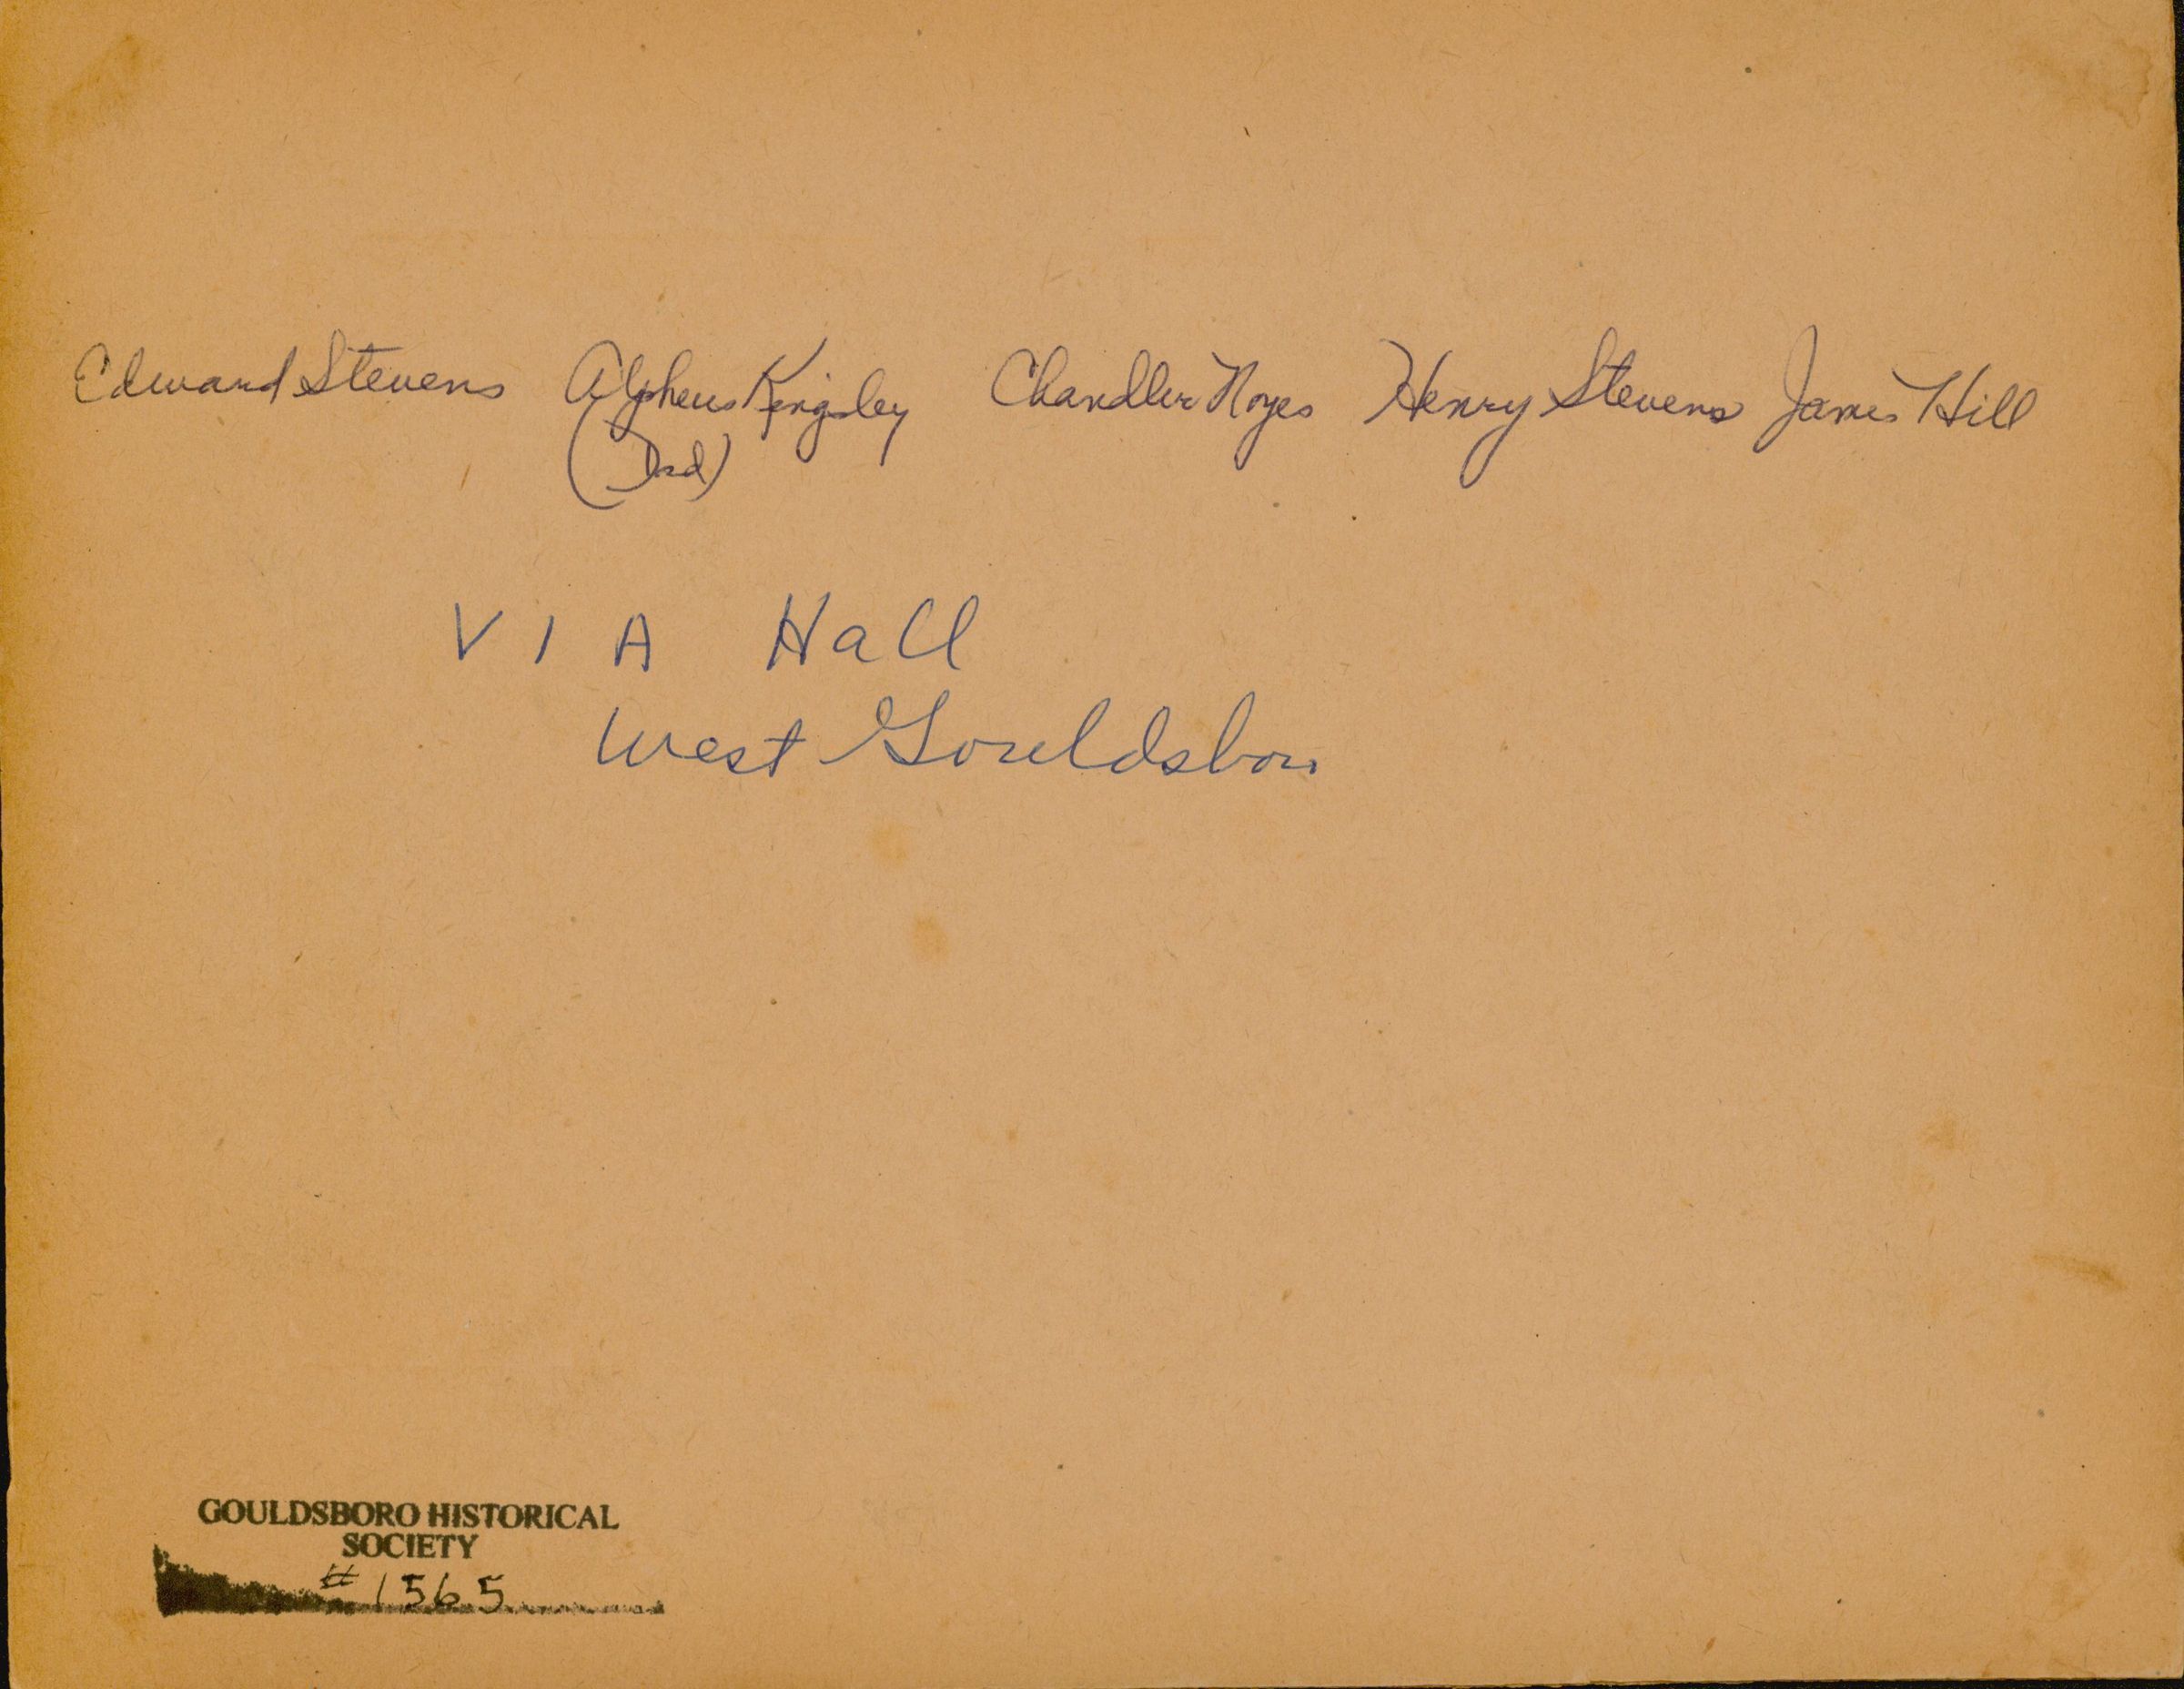 Edward Stevens Alpheus Kingsley Chandler Noyes Henry Stevens James Hill
(Dad)
V I A Hall
West Gouldsboro
GOULDSBORO HISTORICAL
SOCIETY
# 1565